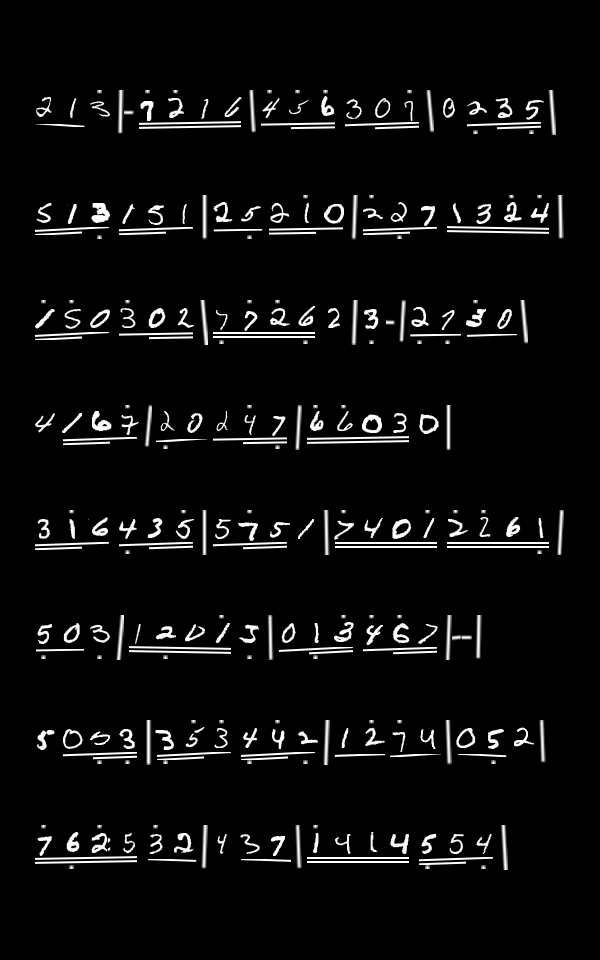 2 1 3 | - 7 2 1 6 | 4 5 6 3 0 7 | 0 2 3 5 |
5 1 3 1 5 1 | 2 5 2 1 0 | 2 2 7 1 3 2 4 |
1 5 0 3 0 2 | 7 7 2 6 2 2 | 3 - | 2 7 3 0 |
4 1 6 7 | 2 0 2 4 7 | 6 6 0 3 0 |
3 1 6 4 3 5 | 5 7 5 1 | 7 4 0 1 2 2 6 1 |
5 0 3 | 1 2 0 1 5 | 0 1 3 4 6 7 | - - |
5 0 5 3 | 3 5 3 4 4 2 | 1 2 7 4 | 0 5 2 |
7 6 2 5 3 2 | 4 3 7 | 1 4 1 4 5 5 4 |